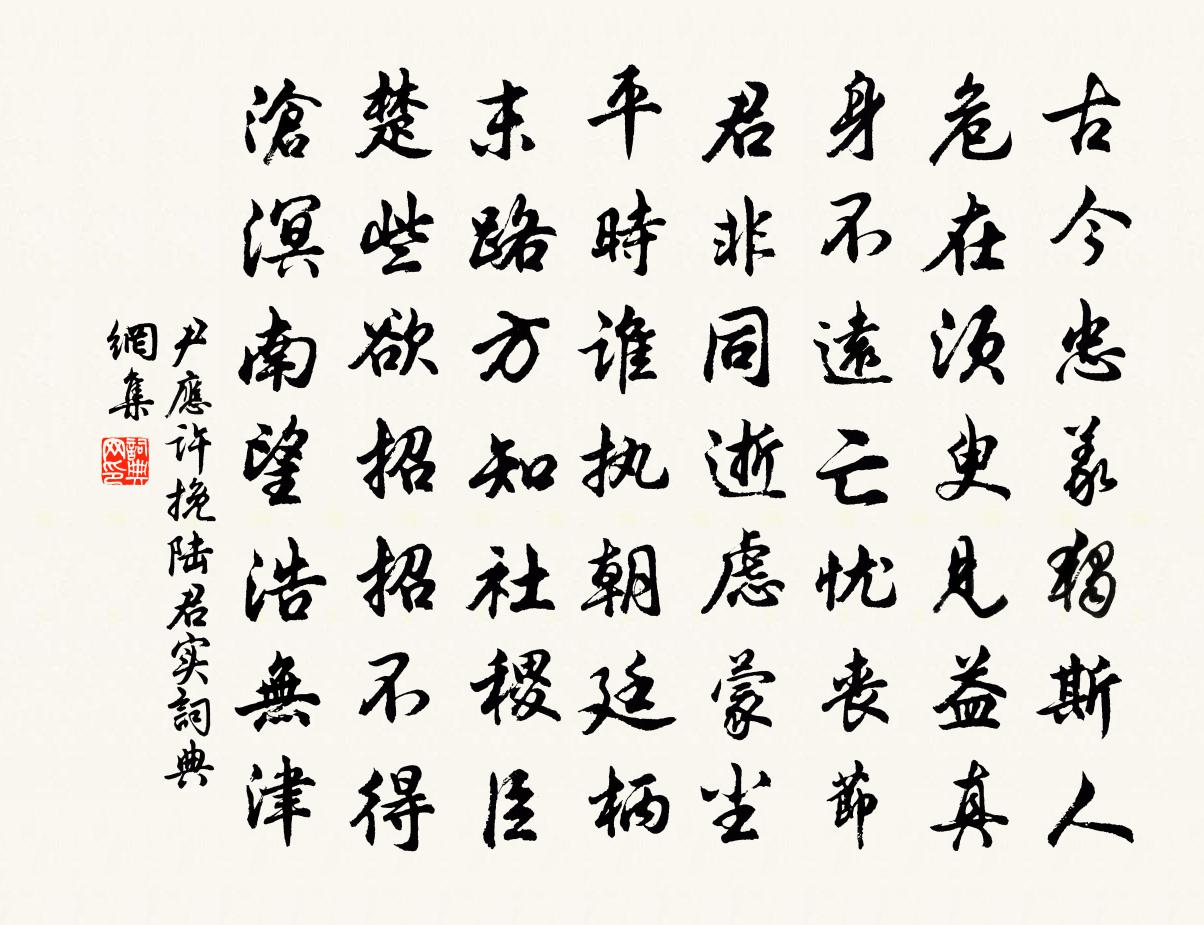 古今忠義獨斯人
危在須臾見益真
身不遠亡忧喪節
君非同逝慮蒙尘
平時谁执朝廷柄
末路方知社稷臣
楚些欲招招不得
滄溟南望浩無津
尹應许挽陆君实詞典
網集
詞典网印